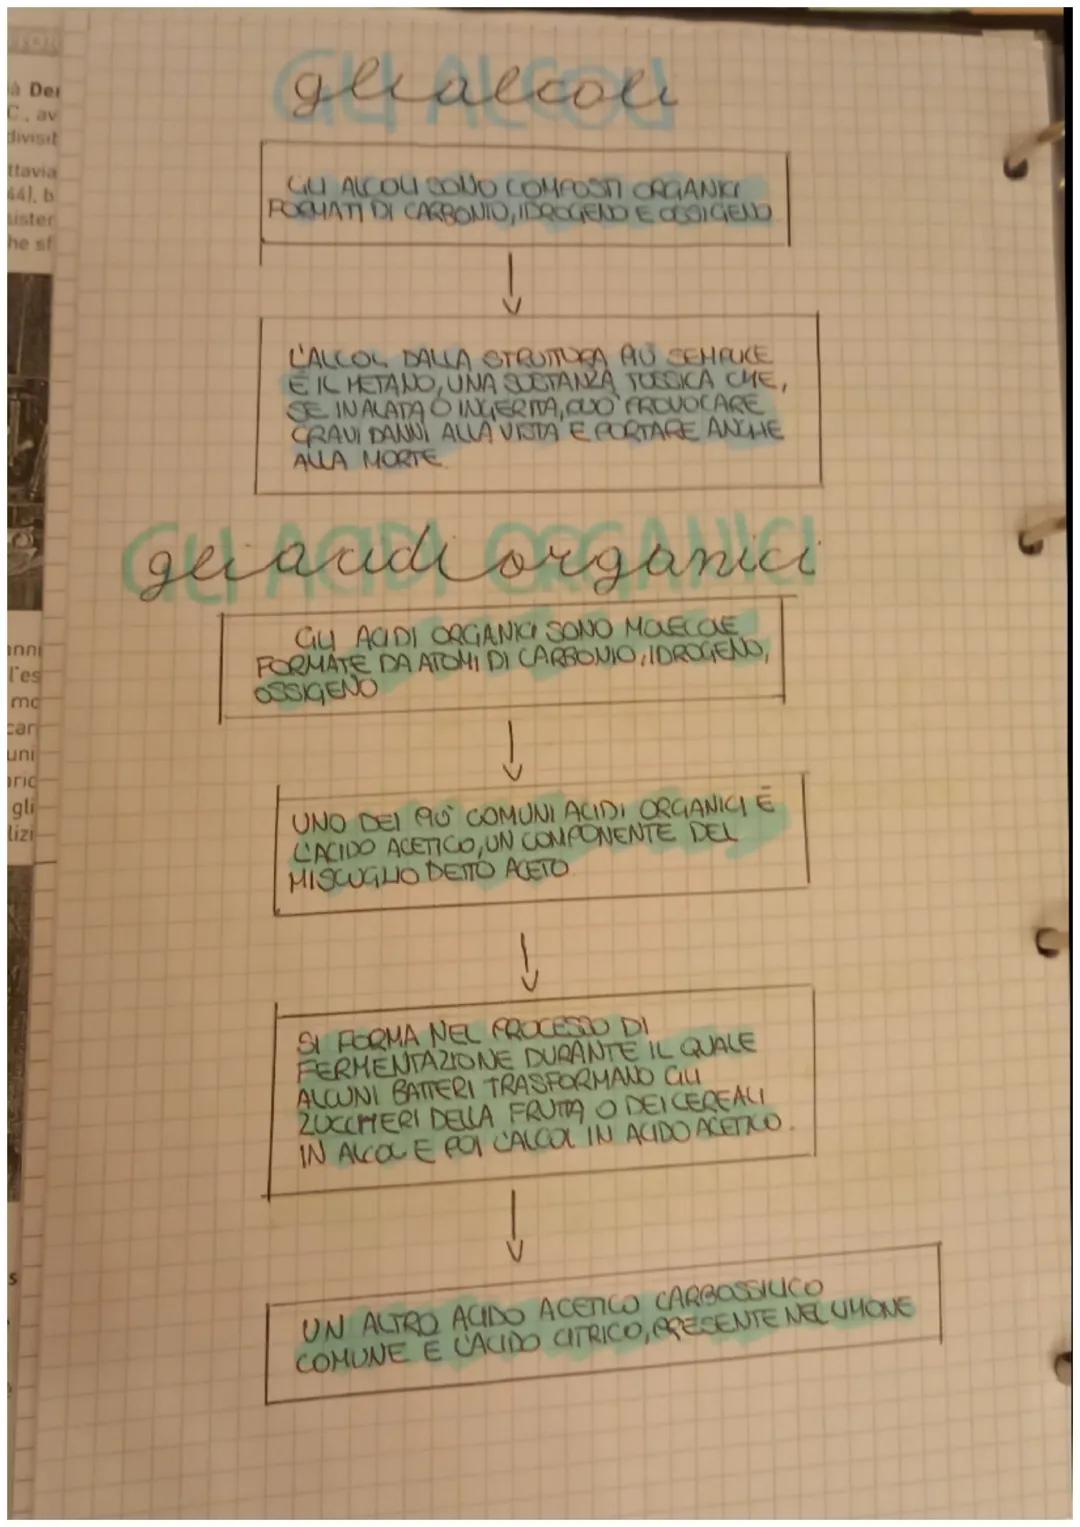 à Der
C., av
divisit
ttavia
44), b
sister
he sf
anni
l'es
mo
car
uni
gli
lizi
gli alcoli
GLI ALCOLI
GLI ALCOLI SONO COMPOSTI ORGANICI
FORMATI DI CARBONIO, IDROGENO E OSSIGENO
L'ALCOL DALLA STRUTTURA PIÙ SEMPLICE
È IL METANO, UNA SOSTANZA TOSSICA CHE,
SE INALATA O INGERITA, PUÒ PROVOCARE
GRAVI DANNI ALLA VISTA E PORTARE ANCHE
ALLA MORTE.
gli acidi organici
GLI ACIDI ORGANICI
GLI ACIDI ORGANICI SONO MOLECOLE
FORMATE DA ATOMI DI CARBONIO, IDROGENO,
OSSIGENO
UNO DEI PIÙ COMUNI ACIDI ORGANICI È
L'ACIDO ACETICO, UN COMPONENTE DEL
MISCUGLIO DETTO ACETO
SI FORMA NEL PROCESSO DI
FERMENTAZIONE DURANTE IL QUALE
ALCUNI BATTERI TRASFORMANO GLI
ZUCCHERI DELLA FRUTTA O DEI CEREALI
IN ALCOL E POI L'ALCOL IN ACIDO ACETICO.
UN ALTRO ACIDO ACETICO CARBOSSILICO
COMUNE E L'ACIDO CITRICO, PRESENTE NEL LIMONE